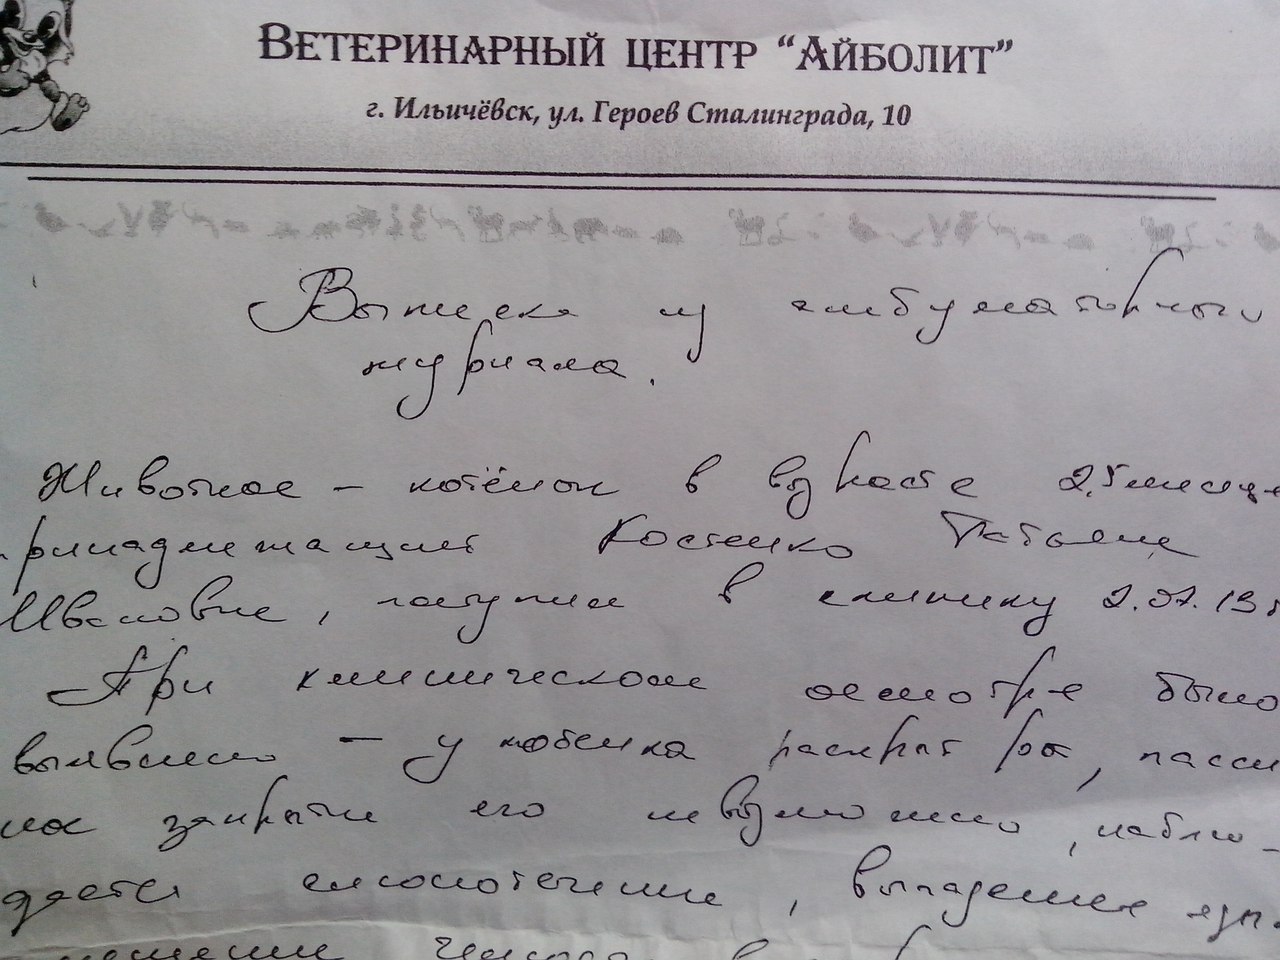 Ветеринарный центр “Айболит”
г. Ильичёвск, ул. Героев Сталинграда, 10
Выписка из амбулаторного
журнала.
Животное – котёнок в возрасте 2,5 месяце
принадлежащий Костенко Татьяне
Ивановне, поступил в клинику 2.07.13г
При клиническом осмотре было
выявлено – у котенка раскрыт рот, пасси
но закрыть его невозможно, наблю-
дается слюнотечение, выпадение язы